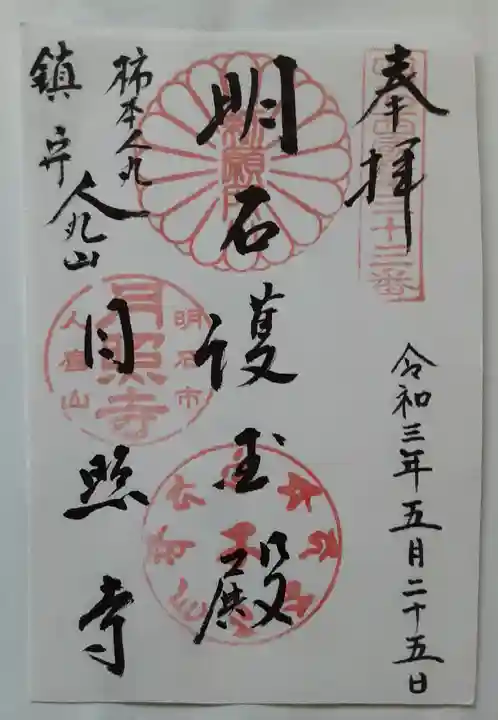 奉拝
三十三番
令和三年五月二十五日
明石護玉殿
勅願所
柿本人丸
鎮守 人丸山
月照寺
月照寺
明石市
人丸山